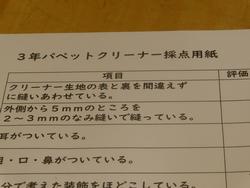 ３年パペットクリーナー採点用紙
項目
評価
クリーナー生地の表と裏を間違えず
に縫いあわせている。
外側から５ｍｍのところを
２～３ｍｍのなみ縫いで縫っている。
耳がついている。
目・口・鼻がついている。
分で考えた装飾をほどこしている。